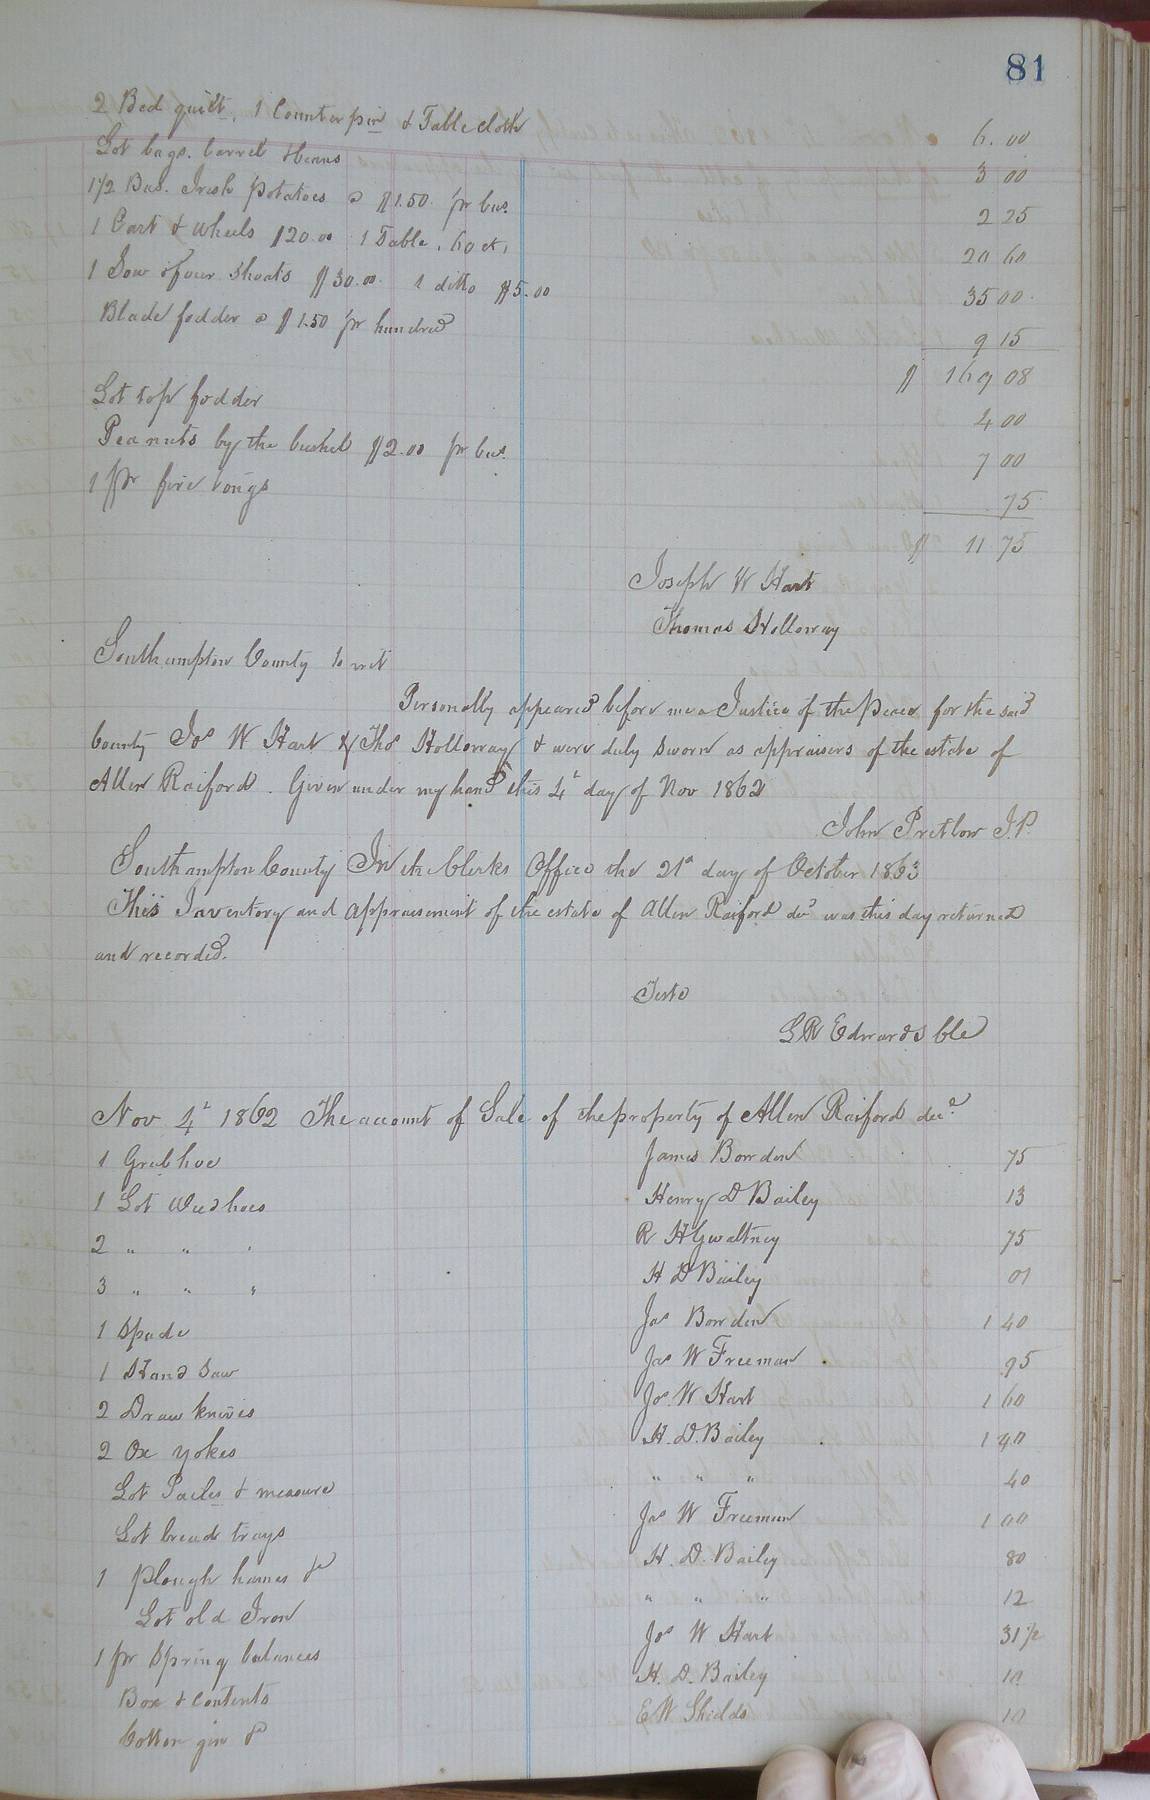 81
2 Bed quilt, 1 Counterpin & Table cloth 6.00
Lot bags, barrel & beans 3 00
1 1/2 Bus. Irish Potatoes @ $1.50 pr bus. 2 25
1 Cart & wheels $20.00 1 Table, 60 ct, 20 60
1 Sow & four Shoats $30.00 1 ditto $5.00 35 00
Blade fodder @ $1.50 pr hundred 9 15
$ 169 08
Lot top fodder 4 00
Peanuts by the bushel $2.00 pr bus. 7 00
1 pr fire tongs 75
$ 11 75
Joseph W Hart
Thomas Holloway
Southampton County to wit
Personally appeared before me a Justice of the Peace for the said
County Jos W Hart & Thos Holloway & were duly sworn as appraisers of the estate of
Allen Raiford. Given under my hand this 4th day of Nov 1862
John Pretlow J.P.
Southampton County In the Clerks Office the 21st day of October 1863
This Inventory and appraisement of the estate of Allen Raiford decd was this day returned
and recorded.
Teste
L R Edwards Cle
Nov 4th 1862 The account of Sale of the property of Allen Raiford decd
1 Grub hoe James Bowden 75
1 Lot Weed hoes Henry D Bailey 13
2 " " " R H Gwaltney 75
3 " " " H D Bailey 01
1 Spade Jas Bowden 1 40
1 Hand Saw Jas W Freeman 95
2 Draw knives Jos. W Hart 1 60
2 Ox yokes H. D. Bailey 1 40
Lot Pails & measure " " " 40
Lot bread trays Jas W Freeman 1 00
1 Plough hames & H. D. Bailey 80
Lot old Iron " " " 12
1 pr Spring balances Jos W Hart 31 1/2
Box & contents H. D. Bailey 10
Cotton gin & E W Shields 10